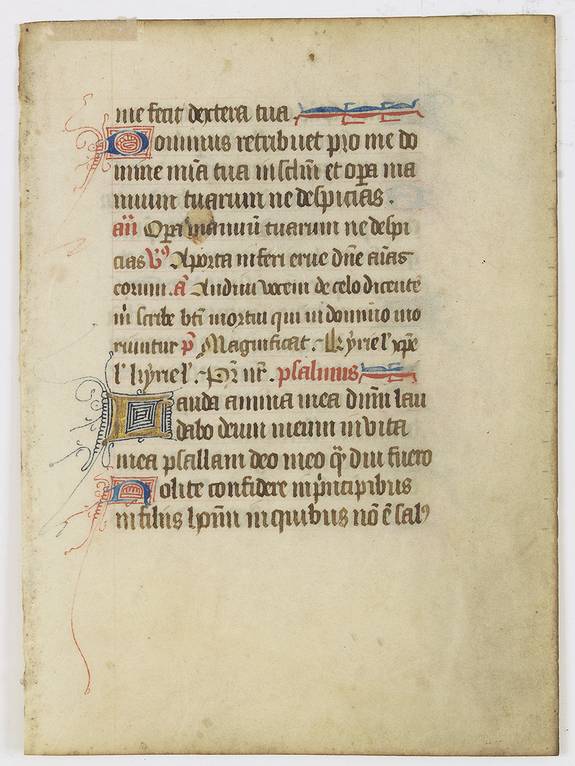 me fecit dextera tua
Dominus retribuet pro me do
mine mia tua in sclm et opa ma
nuum tuarum ne despicias .
añ Opa manuū tuarum ne despi
cias v⁹ Aporta inferi erue dñe aias
eorum . a Audiui vocem de celo dicentē
m scribe bti mortui qui in domino mo
riuntur p̄ Magnificat . kyriel' xp̄e
l' kyriel' . Pr nr . psalmus
Lauda anima mea dnm lau
dabo deum meum in vita
mea psallam deo meo q̄ diu fuero
Nolite confidere in pncipibus
in filiis hom̄ in quibus nō ē sal⁹